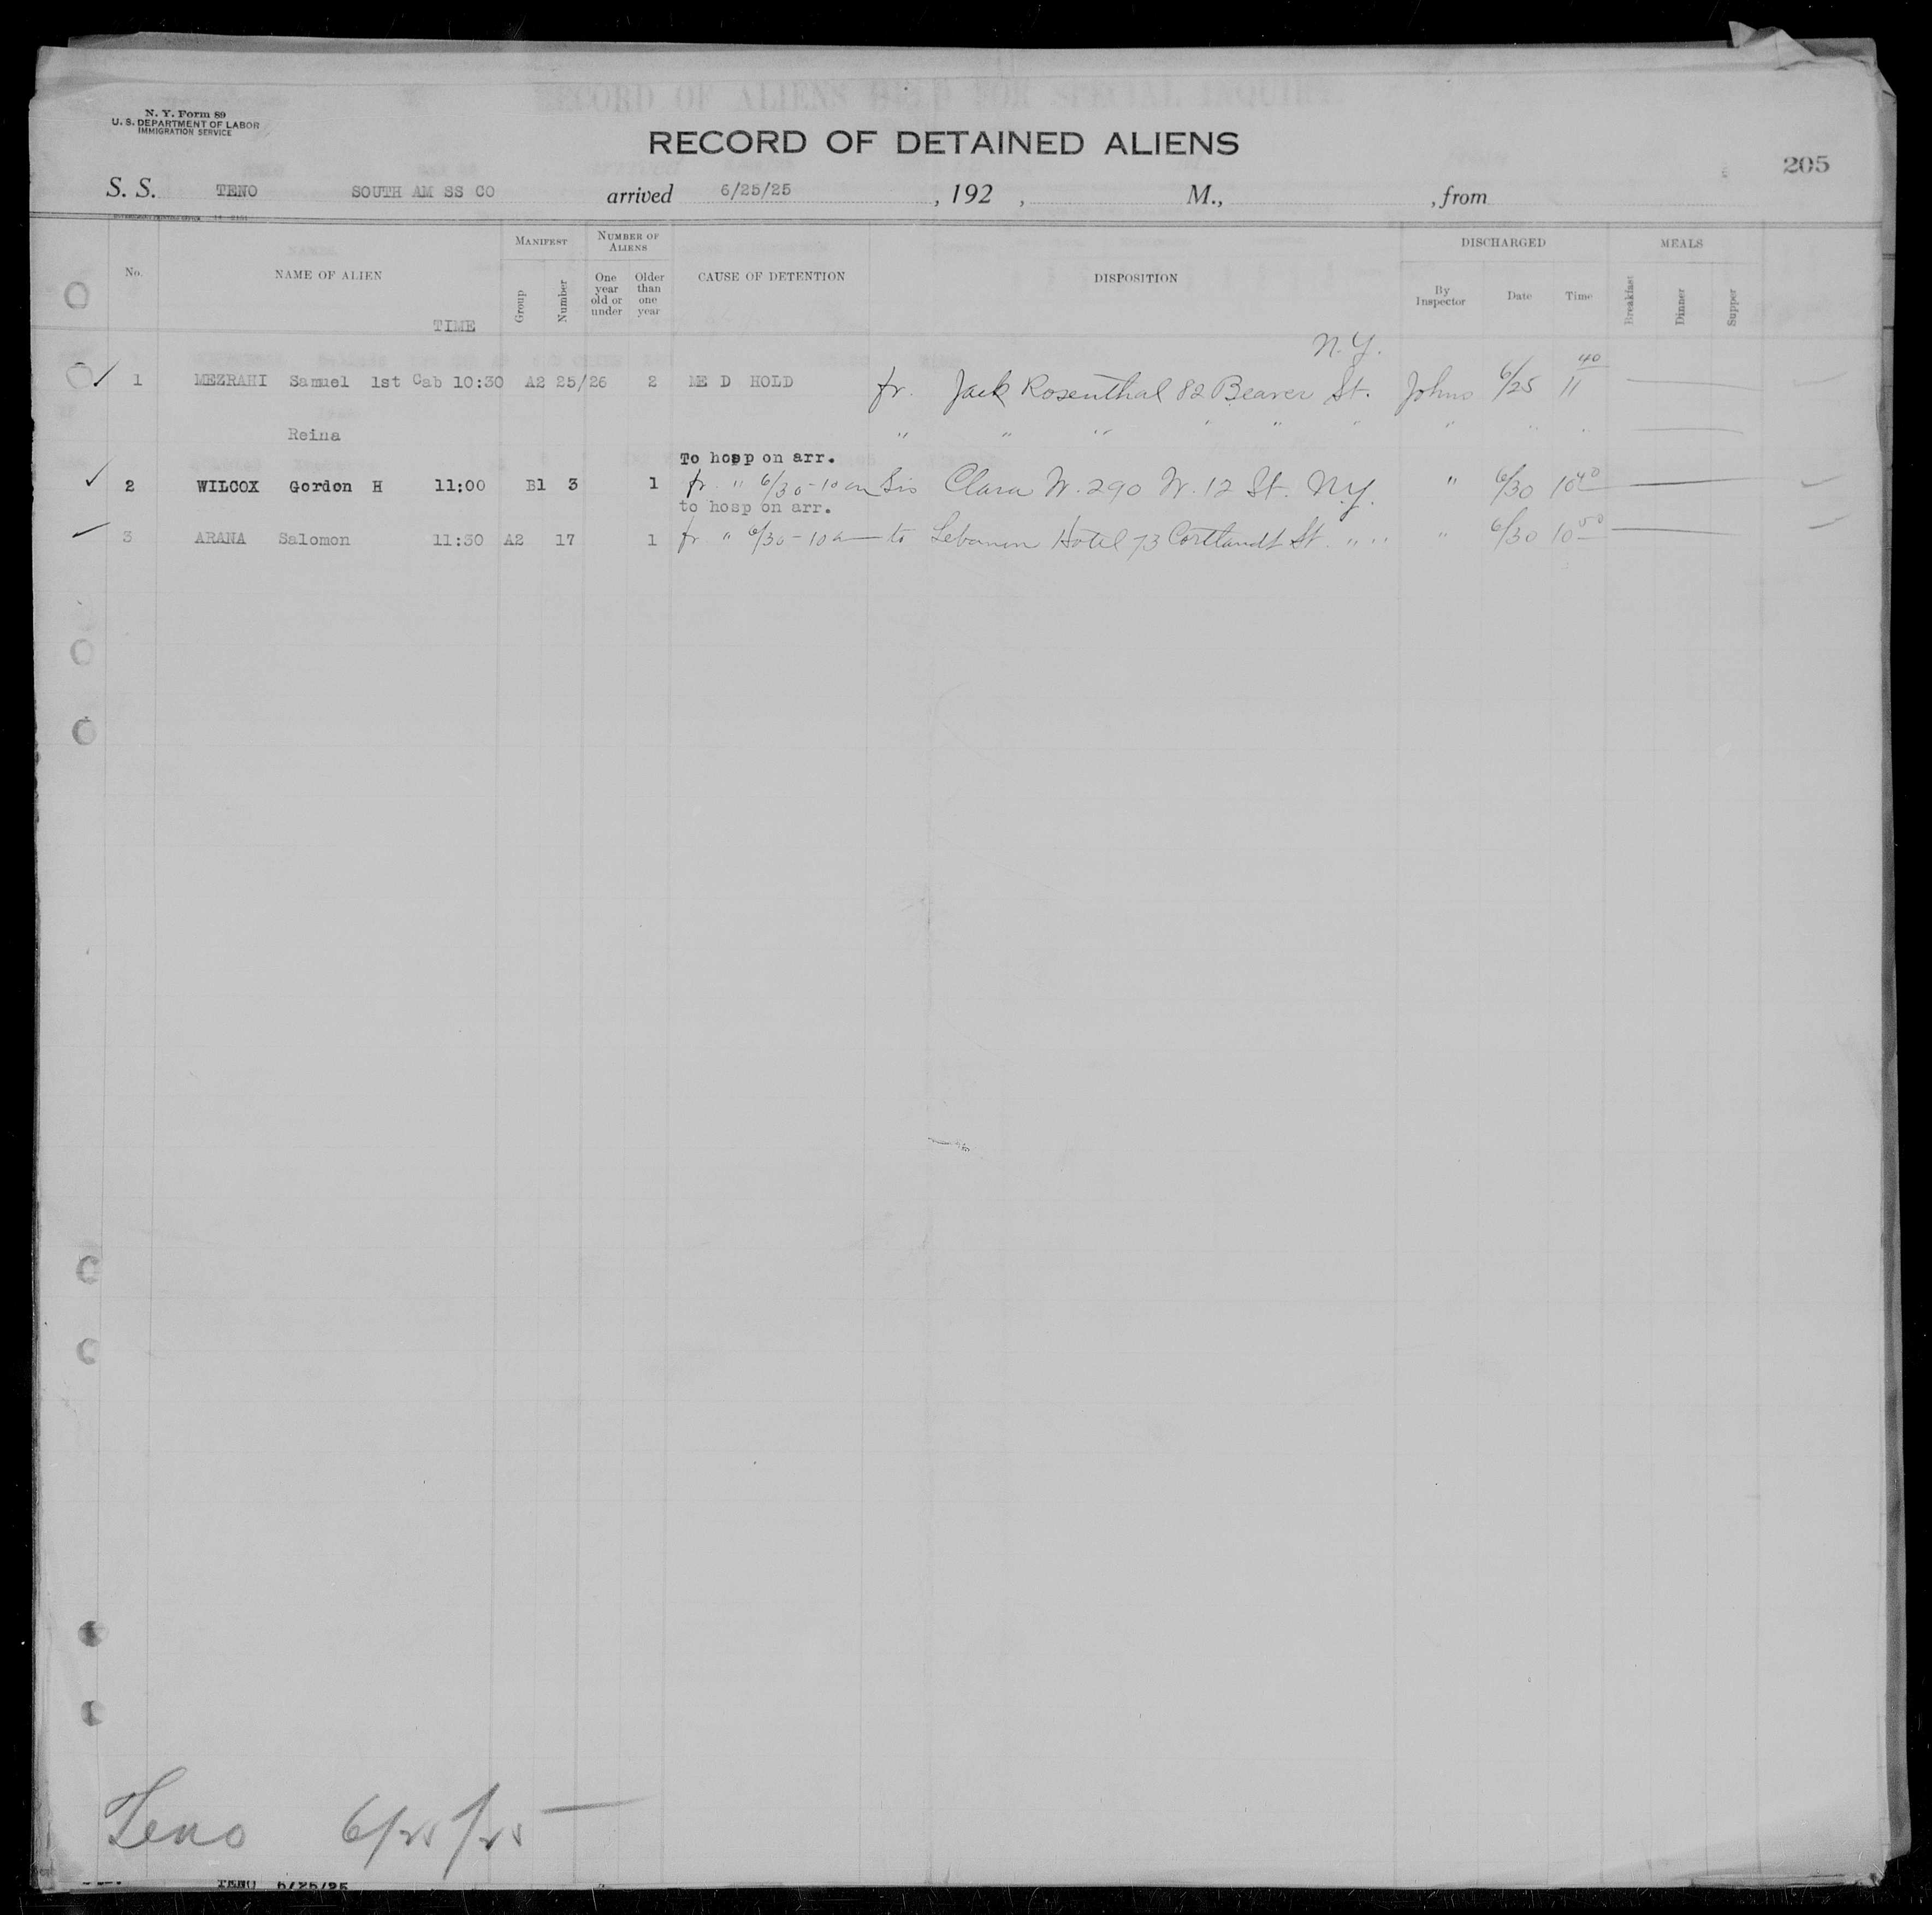 N. Y. Form 89
U. S. DEPARTMENT OF LABOR
IMMIGRATION SERVICE
RECORD OF DETAINED ALIENS
205
S. S. TENO SOUTH AM SS CO arrived 6/25/25 , 192 , M., , from
No. NAME OF ALIEN TIME MANIFEST Group Number NUMBER OF ALIENS One year old or under Older than one year CAUSE OF DETENTION DISPOSITION DISCHARGED By Inspector Date Time MEALS Breakfast Dinner Supper
N.Y.
1 MEZRAHI Samuel 1st Cab 10:30 A2 25/26 2 ME D HOLD fr. Jack Rosenthal 82 Beaver St. Johns 6/25 11 40
Reina " " " " " " " " "
To hosp on arr.
2 WILCOX Gordon H 11:00 B1 3 1 fr. " 6/30-10 am Sis Clara W. 290 W. 12 St. N.Y. " 6/30 10 40
to hosp on arr.
3 ARANA Salomon 11:30 A2 17 1 fr " 6/30-10 a to Lebanon Hotel 73 Cortlandt St. " " " 6/30 10 50
Teno 6/25/25
TENO 6/25/25